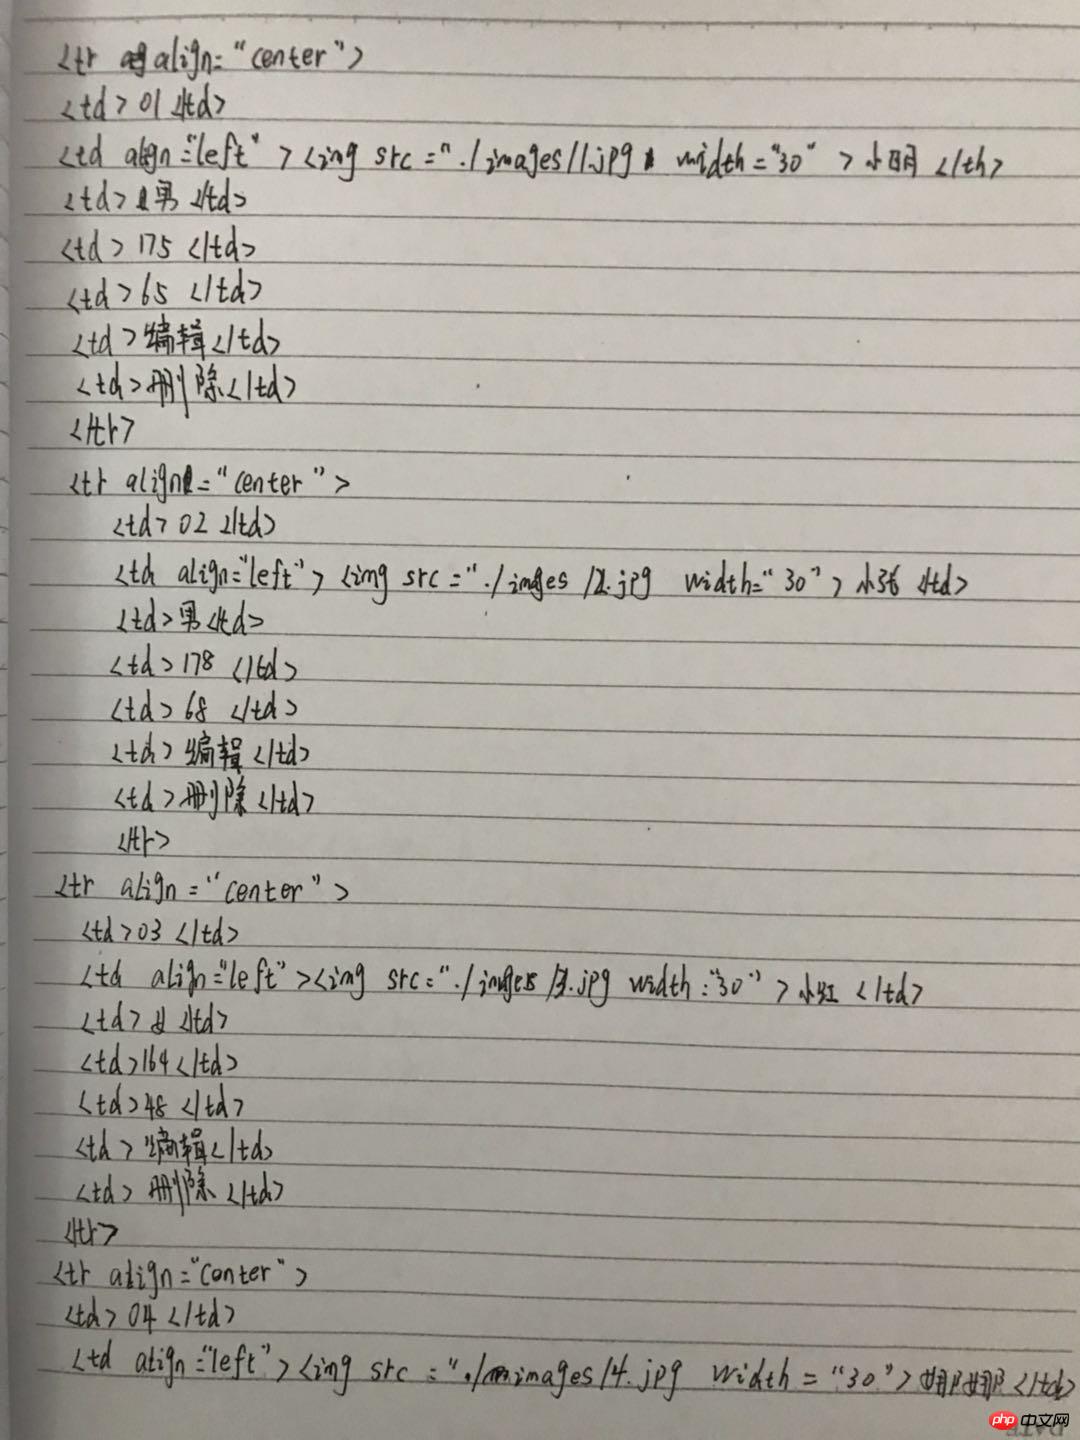 <tr align="center">
<td>01</td>
<td align="left"><img src="./images/1.jpg width="30">小明</th>
<td>男</td>
<td>175</td>
<td>65</td>
<td>编辑</td>
<td>删除</td>
</tr>
<tr align="center">
<td>02</td>
<td align="left"><img src="./images/2.jpg width="30">小张</td>
<td>男</td>
<td>178</td>
<td>68</td>
<td>编辑</td>
<td>删除</td>
</tr>
<tr align="center">
<td>03</td>
<td align="left"><img src="./images/3.jpg width="30">小红</td>
<td>女</td>
<td>164</td>
<td>48</td>
<td>编辑</td>
<td>删除</td>
</tr>
<tr align="conter">
<td>04</td>
<td align="left"><img src="./images/4.jpg width="30">娜娜</td>
php 中文网